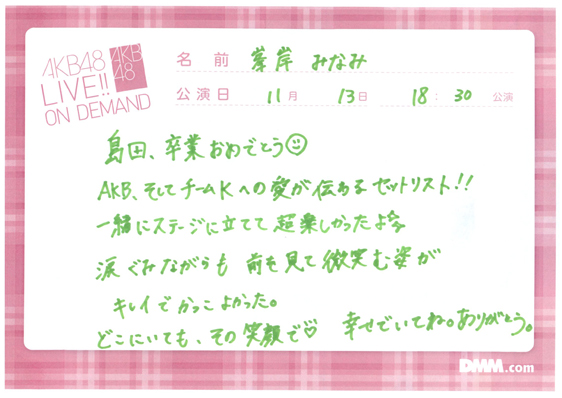 AKB48
LIVE!!
ON DEMAND
AKB
48
名前 峯岸 みなみ
公演日 11月 13日 18:30 公演
島田、卒業おめでとう☺
AKB、そしてチームKへの愛が伝わるセットリスト!!
一緒にステージに立てて超楽しかったよ
涙ぐみながらも 前を見て微笑む姿が
キレイでかっこよかった。
どこにいても、その笑顔で♡ 幸せでいてね。ありがとう。
DMM.com